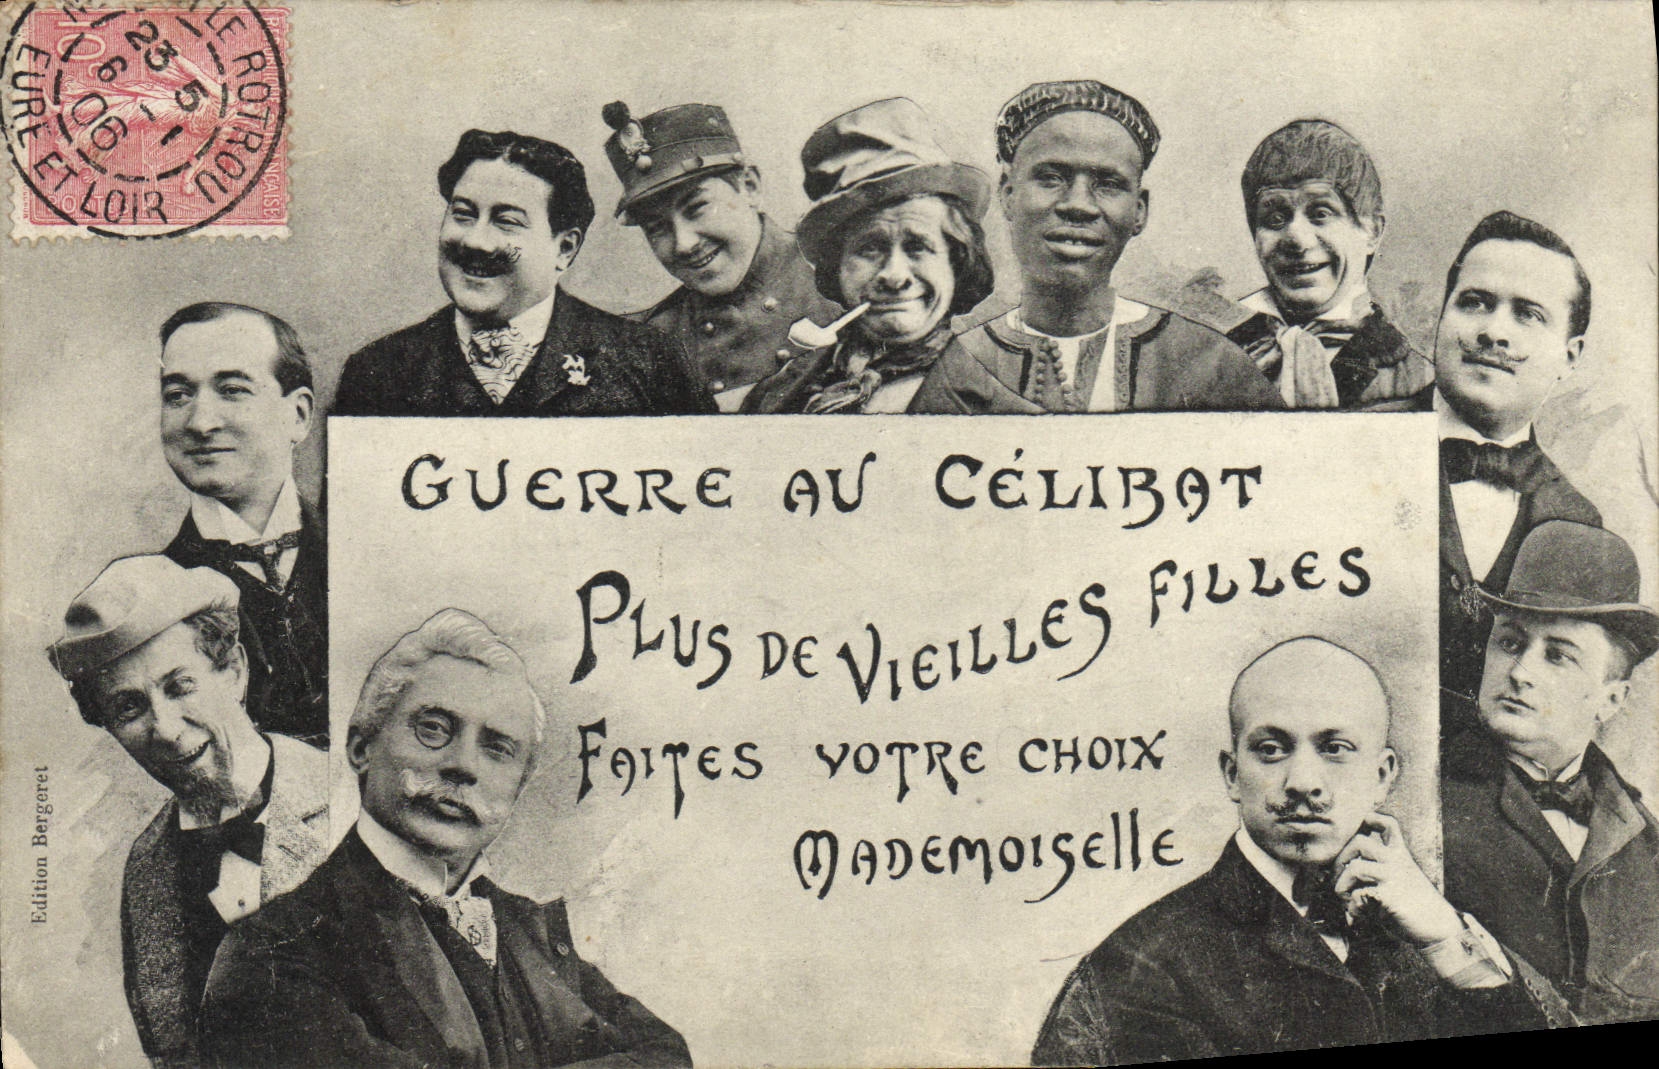 LE ROTROU
EURE ET LOIR
23
5
6
06
10c
GUERRE AU CÉLIBAT
PLUS DE VIEILLES FILLES
FAITES VOTRE CHOIX
MADEMOISELLE
Edition Bergeret